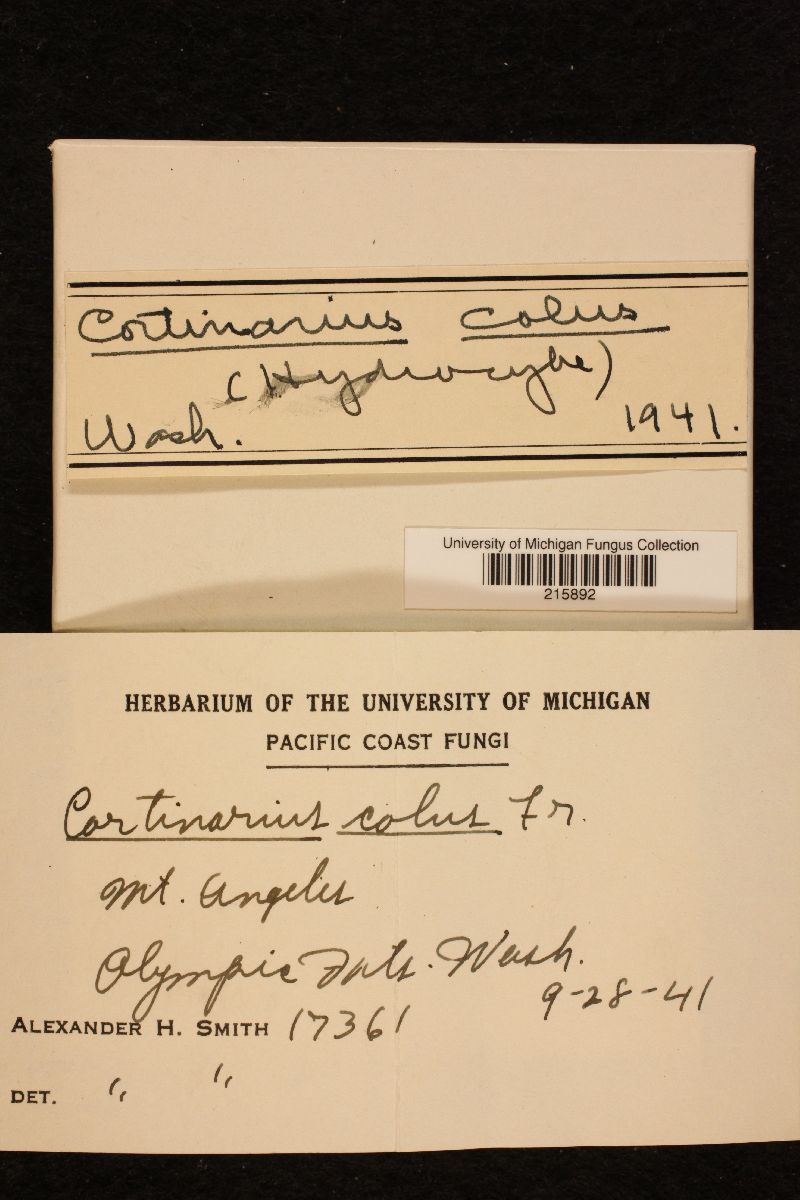 Cortinarius colus
(Hydrocybe)
Wash. 1941.
University of Michigan Fungus Collection
215892
HERBARIUM OF THE UNIVERSITY OF MICHIGAN
PACIFIC COAST FUNGI
Cortinarius colus Fr.
Mt. Angeles
Olympic Wash.
9-28-41
ALEXANDER H. SMITH 17361
DET. " "